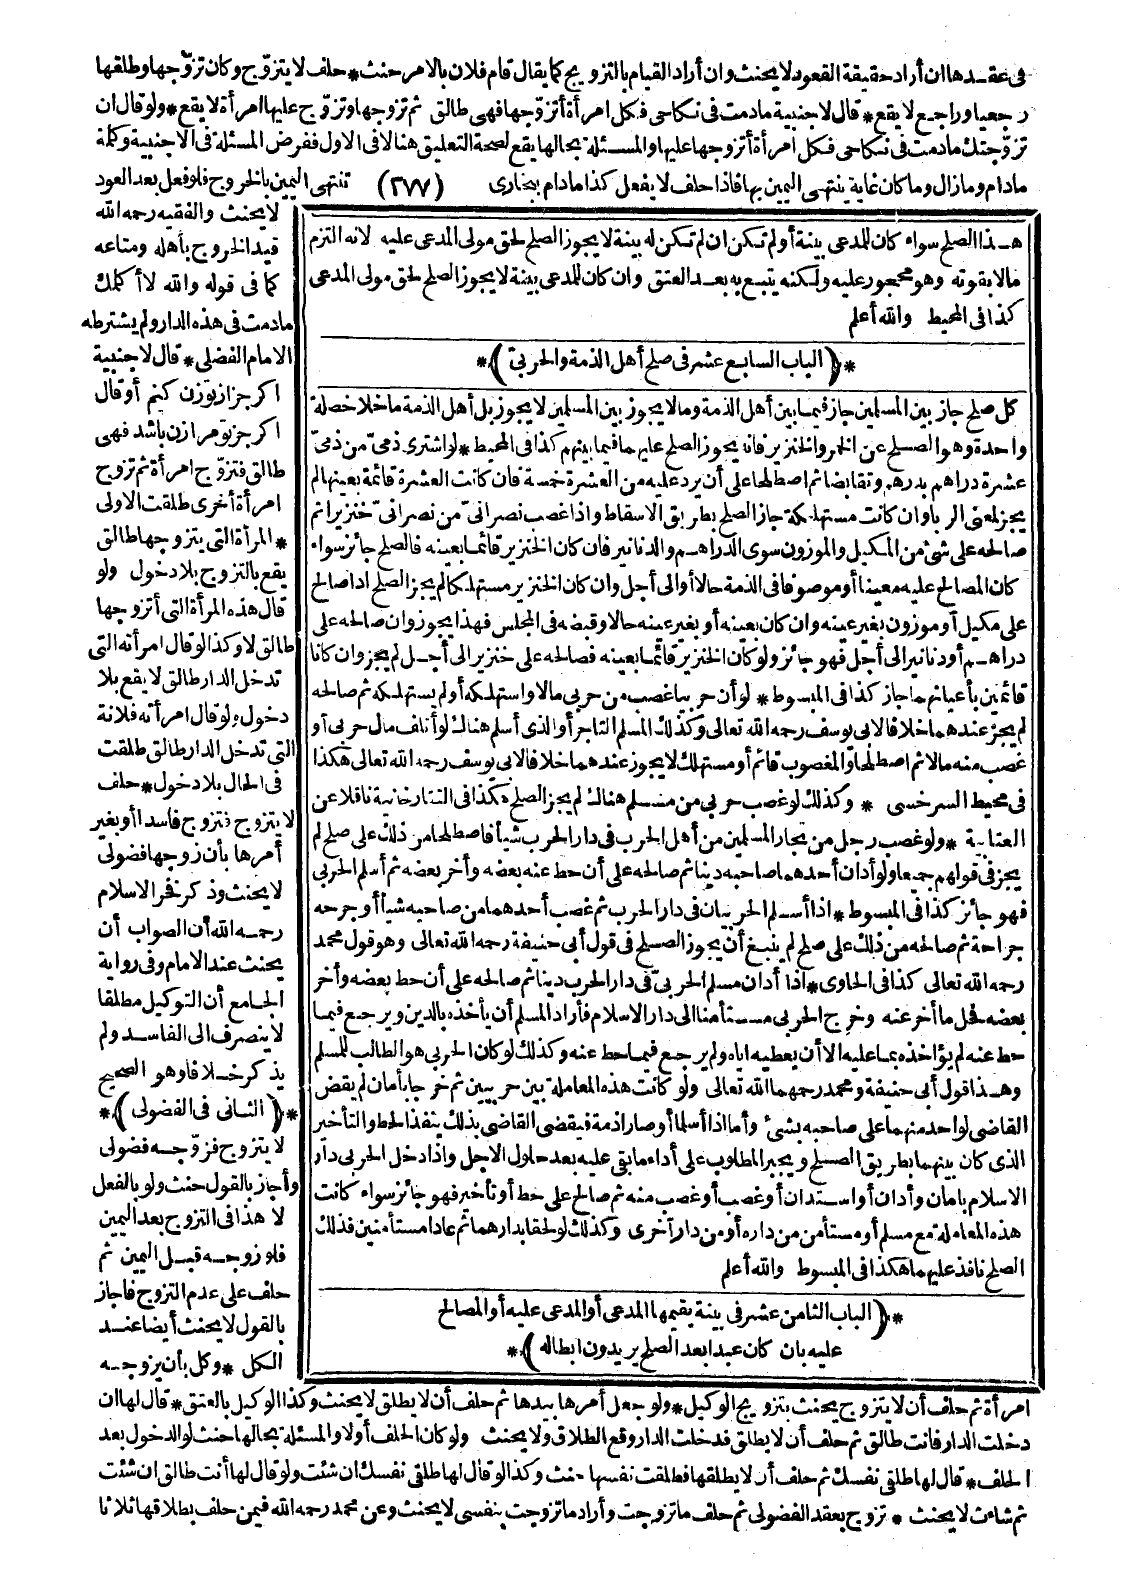 فى عقـدها ان أراد حقيقة القعود لا يحنث وان أراد القيام بالتزويج كما يقال قام فلان بالامر حنث * حلف لا يتزوّج وكان تزوّجها وطلقها
رجعيا وراجع لا يقع * قال لاجنبية مادمت فى نكاحى فكل امرأة أتزوّجها فهى طالق ثم تزوجها وتزوّج عليها امرأة لا يقع * ولو قال ان
تزوّجتك مادمت فى نكاحى فكل امرأة أتزوجها عليها والمسئلة بحالها يقع لصحة التعليق هنا لا فى الاول ففرض المسئلة فى الاجنبية وكلمة
مادام ومازال وما كان غاية ينتهى اليمين بها فاذا حلف لا يفعل كذا مادام ببخارى (٢٧٧) تنتهى اليمين بالخروج فلو فعل بعد العود
لا يحنث والفقيه رحمه الله
قيد الخروج بأهله ومتاعه
كما فى قوله والله لا أكلك
مادمت فى هذه الدار ولم يشترطه
الامام الفضلى * قال لاجنبية
اكر جز از توزن كنم أو قال
اكر جز تو مرا زن باشد فهى
طالق فتزوّج امرأة ثم تزوج
امرأة أخرى طلقت الاولى
* المرأة التى يتزوجها طالق
يقع بالتزوج بلا دخول ولو
قال هذه المرأة التى أتزوجها
طالق لا وكذا لو قال امرأته التى
تدخل الدار طالق لا يقع بلا
دخول ولو قال امرأته فلانة
التى تدخل الدار طالق طلقت
فى الحال بلا دخول * حلف
لا يتزوج فتزوج فاسدا أو بغير
أمرها بأن زوجها فضولى
لا يحنث وذكر فخر الاسلام
رحمه الله أن الصواب أن
يحنث عند الامام وفى رواية
الجامع أن التوكيل مطلقا
لا ينصرف الى الفاسد ولم
يذكر خلافا وهو الصحيح
* ﴿الثانى فى الفضولى﴾ *
لا يتزوج فزوّجه فضولى
وأجاز بالقول حنث ولو بالفعل
لا هذا فى التزوج بعد اليمين
فلو زوجه قبل اليمين ثم
حلف على عدم التزوج فاجاز
بالقول لا يحنث أيضا عند
الكل * وكل بأن يزوجه
هـذا الصلح سواء كان للمدعى بينة أولم تكن ان لم تكن له بينة لا يجوز الصلح لحق مولى المدعى عليه لانه التزم
مالا بقوته وهو محجور عليه ولكنه يتبع به بعد العتق وان كان للمدعى بينة لا يجوز الصلح لحق مولى المدعى
كذا فى المحيط والله أعلم
* ﴿الباب السابع عشر فى صلح أهل الذمة والحربىّ﴾ *
كل صلح جاز بين المسلمين جاز فيما بين أهل الذمة وما لا يجوز بين المسلمين لا يجوز بل أهل الذمة ما خلا خصلة
واحدة وهو الصلح عن الخمر والخنزير فانه يجوز الصلح عليهما فيما بينهم كذا فى المحيط * لو اشترى ذمىّ من ذمىّ
عشرة دراهم بدرهم وتقابضا ثم اصطلحا على أن يرد عليه من العشرة خمسة فان كانت العشرة قائمة بعينها لم
يجز لمعنى الربا وان كانت مستهلكة جاز الصلح بطريق الاسقاط واذا غصب نصرانىّ من نصرانى خنزيرا ثم
صالحه على شئ من المكيل والموزون سوى الدراهم والدنانير فان كان الخنزير قائما بعينه فالصلح جائز سواء
كان المصالح عليه معينا أو موصوفا فى الذمة حالا أوالى أجل وان كان الخنزير مستهلكا لم يجز الصلح اذا صالح
على مكيل أو موزون بغير عينه وان كان بعينه أو بغير عينه حالا وقبضه فى المجلس فهذا يجوز وان صالحه على
دراهم أو دنانير الى أجل فهو جائز ولو كان الخنزير قائما بعينه فصالحه على خنزير الى أجـل لم يجز وان كانا
قائمين بأعيانهما جاز كذا فى المبسوط * لو أن حربيا غصب من حربى مالا واستهلكه أولم يستهلكه ثم صالحه
لم يجز عندهما خلافا لابى يوسف رحمه الله تعالى وكذلك المسلم التاجر أو الذى أسلم هناك لو أتلف مال حربى أو
غصب منه مالا ثم اصطلحا والمغصوب قائم أو مستهلك لا يجوز عندهما خلافا لابى يوسف رحمه الله تعالى هكذا
فى محيط السرخسى * وكذلك لو غصب حربى من مسلم هناك لم يجز الصلح هكذا فى التتارخانية ناقلا عن
العتابية * ولو غصب رجل من تجار المسلمين من أهل الحرب فى دار الحرب شيأ فاصطلحا من ذلك على صلح لم
يجز فى قولهم جميعا ولو أدان أحدهما صاحبه دينا ثم صالحه على أن حط عنه بعضه وأخر بعضه ثم أسلم الحربى
فهو جائز كذا فى المبسوط * اذا أسـلم الحربيان فى دار الحرب ثم غصب أحدهما من صاحبه شيأ أو جرحه
جراحة ثم صالحه من ذلك على صلح لم ينبغ أن يجوز الصلح فى قول أبى حنيفة رحمه الله تعالى وهو قول محمد
رحمه الله تعالى كذا فى الحاوى * اذا أدان مسلم الحربىّ فى دار الحرب دينا ثم صالحه على أن حط بعضه وأخر
بعضه فحل ما أخر عنه وخرج الحربى مستأمنا الى دار الاسلام فأراد المسلم أن يأخذه بالدين ويرجع فيما
حط عنه لم يؤاخذه بما عليه الا أن يعطيه اياه ولم يرجع فيما حط عنه وكذلك لو كان الحربى هو الطالب للمسلم
وهـذا قول أبى حنيفة ومحمد رحمهما الله تعالى ولو كانت هذه المعاملة بين حربيين ثم خرجا بأمان لم يقض
القاضى لواحد منهما على صاحبه بشئ وأما اذا أسلما أو صارا ذمة فيقضى القاضى بذلك ينفذ الحط والتأخير
الذى كان بينهما بطريق الصلح ويجبر المطلوب على أداء ما بقى عليه بعد حلول الاجل واذا دخل الحربى دار
الاسلام بامان وأدان أو استدان أو غصب أو غصب منه ثم صالح على حط أو تأخير فهو جائز سواء كانت
هذه المعاملة مع مسلم أو مستأمن من داره أو من دار أخرى وكذلك لو لحقا بدارهما ثم عادا مستأمنين فذلك
الصلح نافذ عليهما هكذا فى المبسوط والله أعلم
* ﴿الباب الثامن عشر فى بينة يقيمها المدعى أو المدعى عليه أو المصالح
عليه بان كان عبدا بعد الصلح يريدون ابطاله﴾ *
امرأة ثم حلف أن لا يتزوج يحنث بتزويج الوكيل * ولو جعل أمرها بيدها ثم حلف أن لا يطلق لا يحنث وكذا الوكيل بالعتق * قال لها ان
دخلت الدار فانت طالق ثم حلف أن لا يطلق فدخلت الدار وقع الطلاق ولا يحنث ولو كان الحلف أولا والمسئلة بحالها حنث لو الدخول بعد
الحلف * قال لها طلقى نفسك ثم حلف أن لا يطلقها فطلقت نفسها حنث وكذا لو قال لها طلقى نفسك ان شئت ولو قال لها أنت طالق ان شئت
ثم شاءت لا يحنث * تزوج بعقد الفضولى ثم حلف ما تزوجت وأراد ما تزوجت بنفسى لا يحنث وعن محمد رحمه الله فيمن حلف بطلاقها ثلاثا